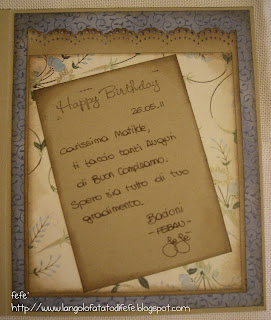 Happy Birthday
26.05.11
Carissima Matilde,
ti faccio tanti Auguri
di Buon Compleanno.
Spero sia tutto di tuo
gradimento.
Bacioni
-FEBAU-
fefe'
http://www.langolofatatodifefe.blogspot.com